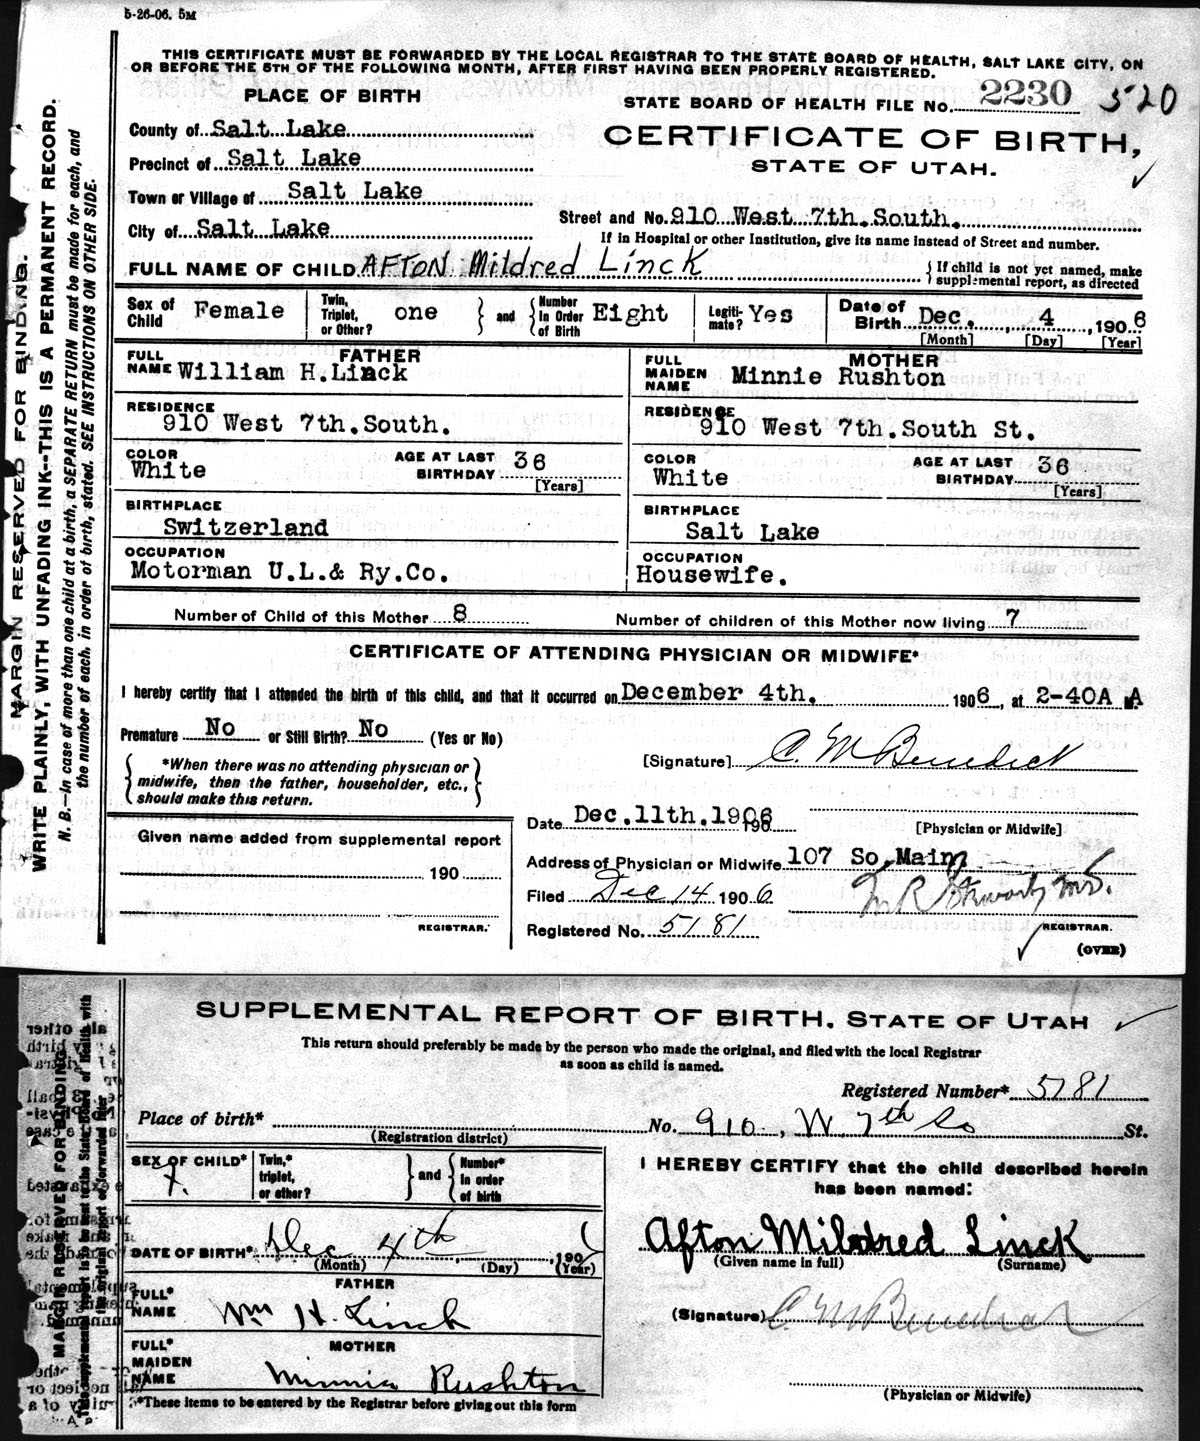 5-26-06. 5M
THIS CERTIFICATE MUST BE FORWARDED BY THE LOCAL REGISTRAR TO THE STATE BOARD OF HEALTH, SALT LAKE CITY, ON
OR BEFORE THE 5TH OF THE FOLLOWING MONTH, AFTER FIRST HAVING BEEN PROPERLY REGISTERED.
MARGIN RESERVED FOR BINDING.
WRITE PLAINLY, WITH UNFADING INK--THIS IS A PERMANENT RECORD.
N. B.—In case of more than one child at a birth, a SEPARATE RETURN must be made for each, and
the number of each, in order of birth, stated. SEE INSTRUCTIONS ON OTHER SIDE.
PLACE OF BIRTH
STATE BOARD OF HEALTH FILE NO. 2230 520
County of Salt Lake
CERTIFICATE OF BIRTH,
Precinct of Salt Lake
STATE OF UTAH.
Town or Village of Salt Lake
Street and No. 910 West 7th. South.
City of Salt Lake
If in Hospital or other Institution, give its name instead of Street and number.
FULL NAME OF CHILD AFTON Mildred Linck
{If child is not yet named, make
supplemental report, as directed
Sex of Child Female
Twin, Triplet, or Other? one
and
Number in Order of Birth Eight
Legiti-mate? Yes
Date of Birth Dec. 4, 1906
[Month] [Day] [Year]
FATHER
FULL NAME William H. Linck
MOTHER
FULL MAIDEN NAME Minnie Rushton
RESIDENCE
910 West 7th. South.
RESIDENCE
910 West 7th. South St.
COLOR White
AGE AT LAST BIRTHDAY 36
[Years]
COLOR White
AGE AT LAST BIRTHDAY 36
[Years]
BIRTHPLACE
Switzerland
BIRTHPLACE
Salt Lake
OCCUPATION
Motorman U.L.& Ry.Co.
OCCUPATION
Housewife.
Number of Child of this Mother 8
Number of children of this Mother now living 7
CERTIFICATE OF ATTENDING PHYSICIAN OR MIDWIFE*
I hereby certify that I attended the birth of this child, and that it occurred on December 4th. 1906, at 2-40A
Premature No or Still Birth? No (Yes or No)
*When there was no attending physician or
midwife, then the father, householder, etc.,
should make this return.
[Signature] C. M Benedict
Date Dec. 11th. 1906
[Physician or Midwife]
Given name added from supplemental report
190
REGISTRAR.
Address of Physician or Midwife 107 So, Main.
Filed Dec 14 1906
Registered No. 5181
REGISTRAR.
(OVER)
SUPPLEMENTAL REPORT OF BIRTH, STATE OF UTAH
This return should preferably be made by the person who made the original, and filed with the local Registrar
as soon as child is named.
MARGIN RESERVED FOR BINDING
Registered Number* 5181
Place of birth* No. 910, W 7th So St.
(Registration district)
SEX OF CHILD* F.
Twin,* triplet, or other?
and
Number* in order of birth
I HEREBY CERTIFY that the child described herein
has been named:
Afton Mildred Linck
(Given name in full) (Surname)
DATE OF BIRTH* Dec 4th, 1906
(Month) (Day) (Year)
FATHER
FULL* NAME Wm H. Linck
(Signature) C. M Benedict
MOTHER
FULL* MAIDEN NAME Minnie Rushton
(Physician or Midwife)
*These items to be entered by the Registrar before giving out this form